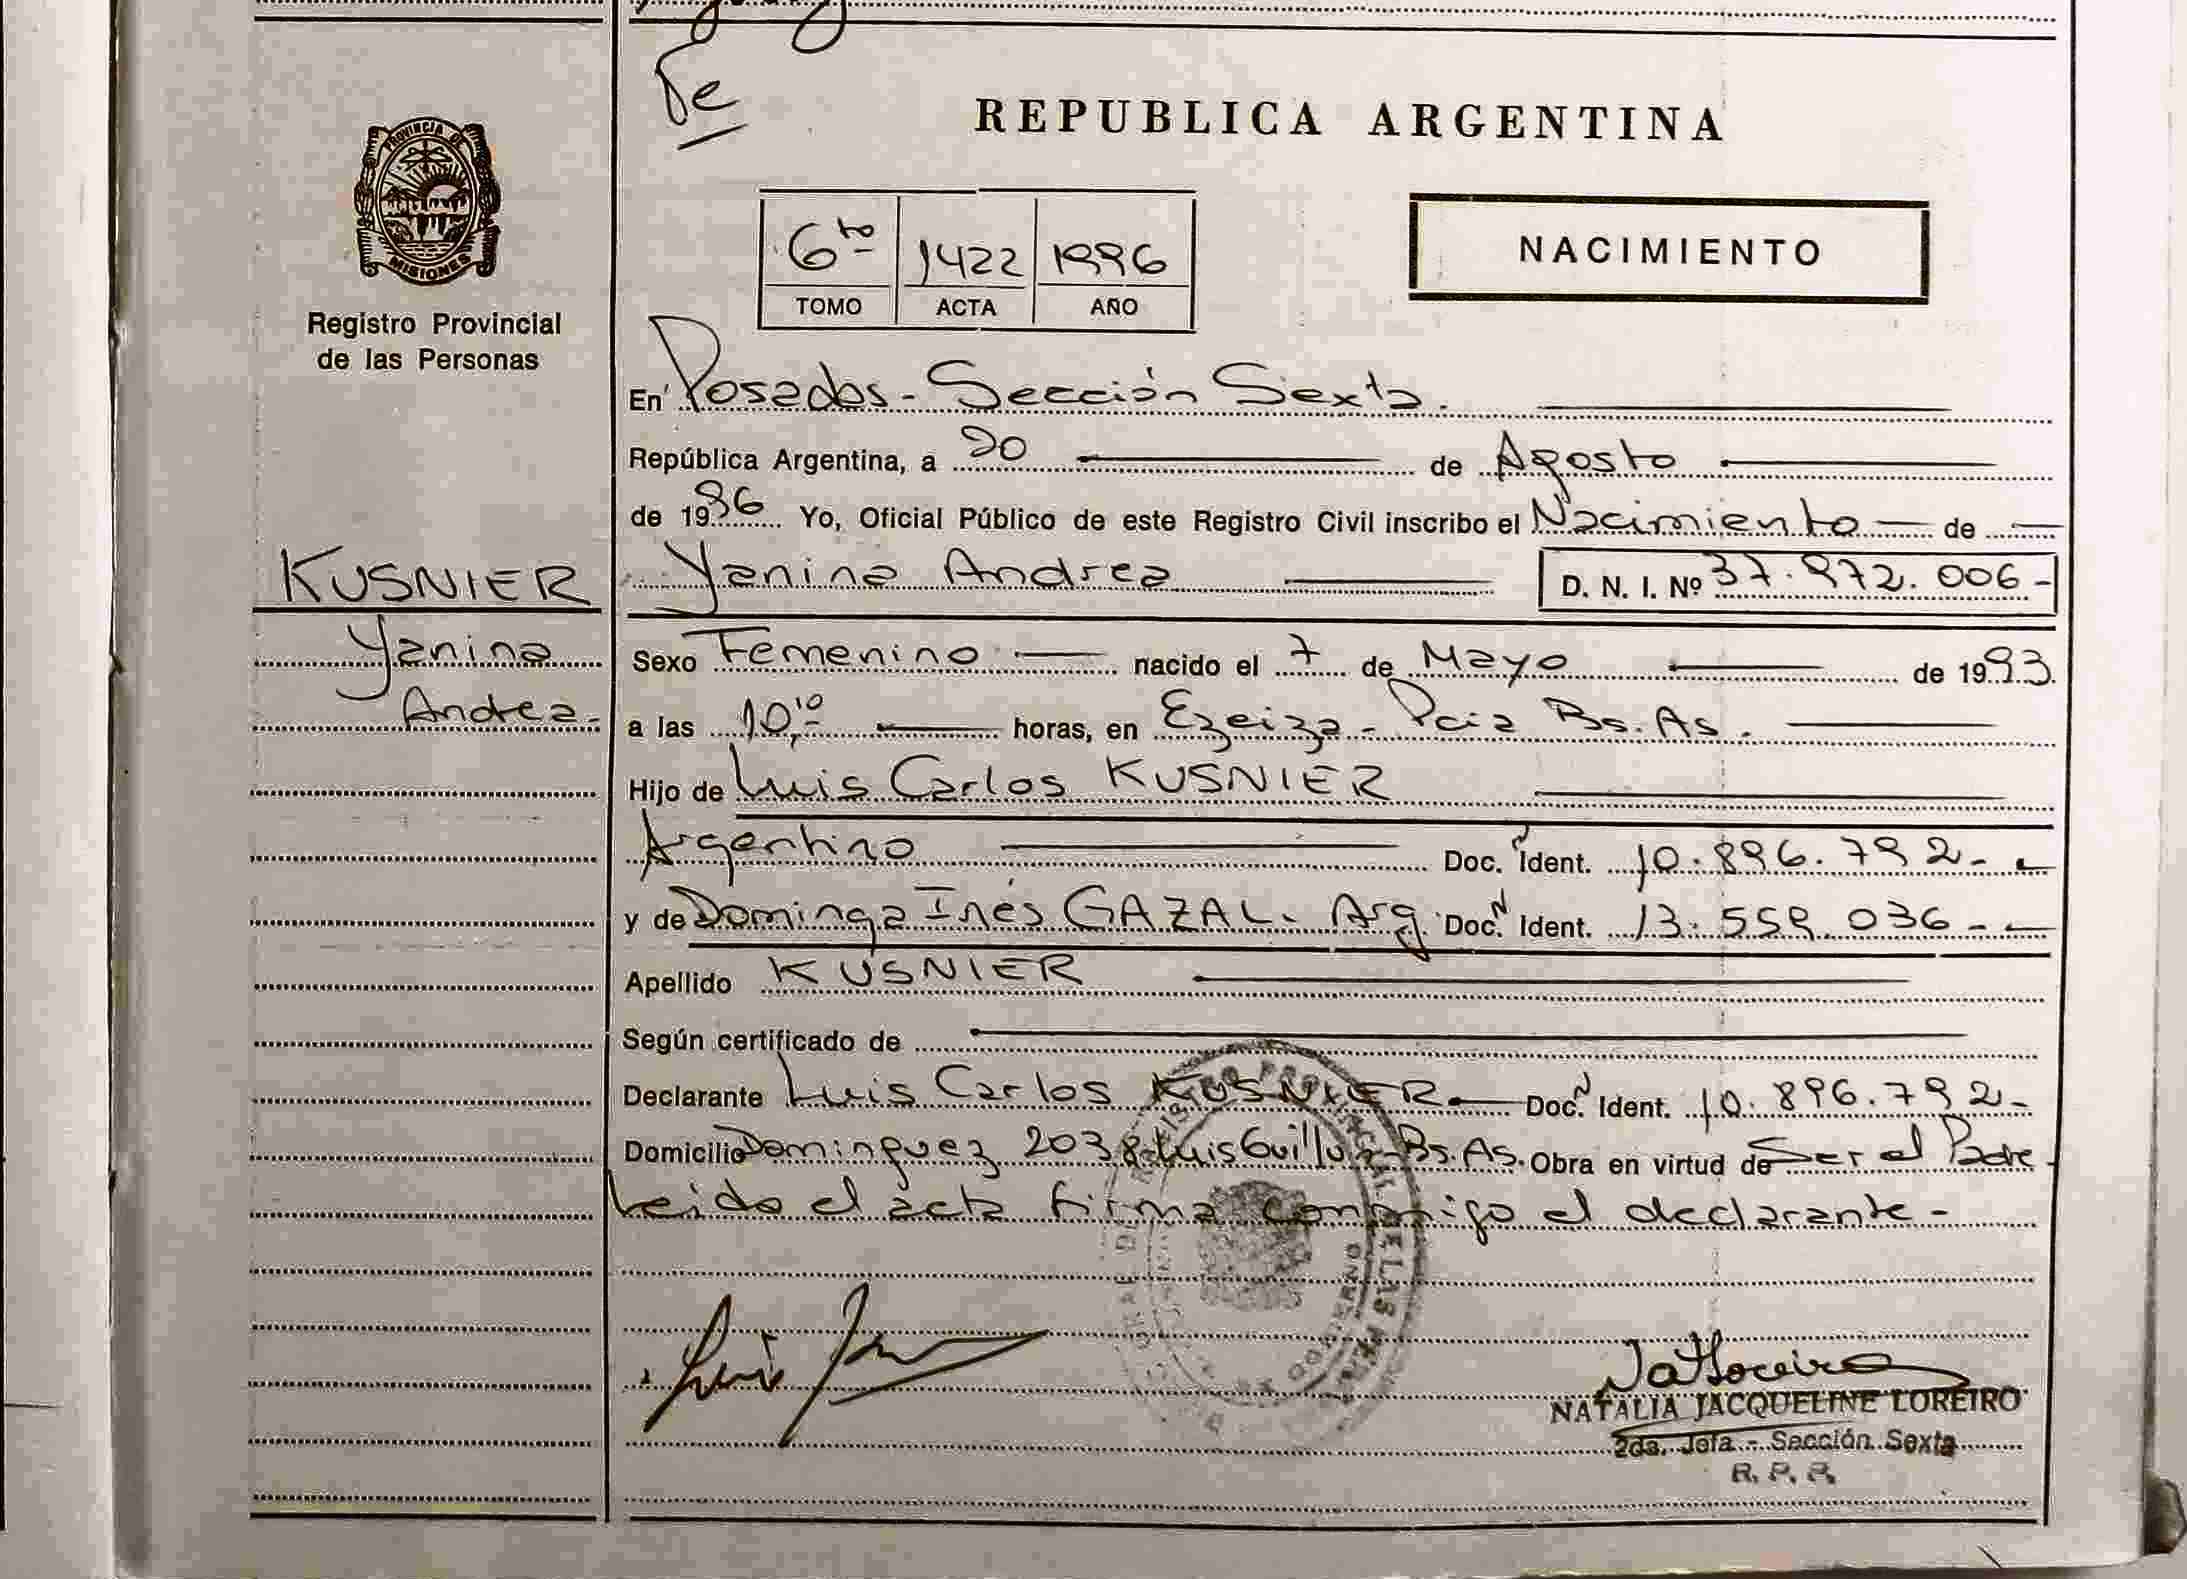 Te
REPUBLICA ARGENTINA
PROVINCIA DE
MISIONES
Registro Provincial
de las Personas
6to 1422 1996
TOMO ACTA AÑO
NACIMIENTO
En Posadas - Sección Sexta.
República Argentina, a 20 de Agosto
de 1996 Yo, Oficial Público de este Registro Civil inscribo el Nacimiento de
KUSNIER
Yanina
Andrea-
Yanina Andrea D. N. I. Nº 37.972.006-
Sexo Femenino nacido el 7 de Mayo de 1993
a las 10,10 horas, en Ezeiza - Pcia Bs. As.
Hijo de Luis Carlos KUSNIER
Argentino Doc. N Ident. 10.896.792-
y de Dominga Inés GAZAL. Arg. Doc. N Ident. 13.559.036-
Apellido KUSNIER
Según certificado de
Declarante Luis Carlos KUSNIER Doc. N Ident. 10.896.792-
Domicilio Dominguez 2038 Luis Guillón - Bs. As. Obra en virtud de Ser el Padre
Leido el acta firma conmigo el declarante-
Luis
NATALIA JACQUELINE LOREIRO
2da. Jefa - Sección Sexta
R. P. P.